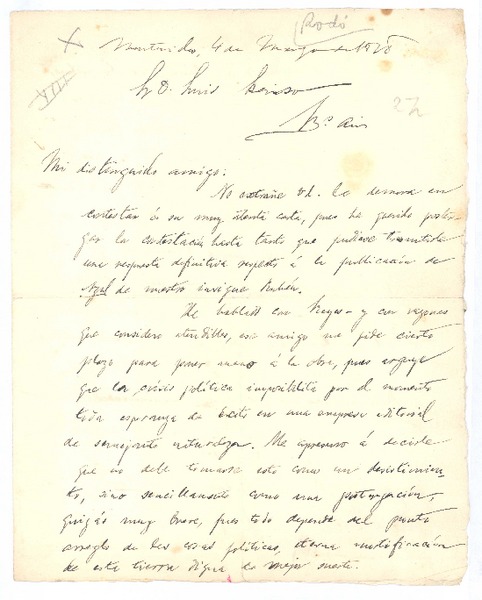 Rodó
X Montevideo, 4 de Marzo de
XIII
Sr D. Luis Berisso
22
Bs. Aires
Mi distinguido amigo:
No extrañe Vd. la demora en
contestar á su muy atenta carta, pues he querido poster-
gar la contestación hasta tanto que pudiese transmitirle
una respuesta definitiva respecto á la publicación de
Azul de nuestro insigne Rubén.
He hablado con Reyes – y con razones
que considero atendibles, ese amigo me pide cierto
plazo para poner mano á la obra, pues arguye
que la crisis política imposibilita por el momento
toda esperanza de éxito en una empresa editorial
de semejante naturaleza. Me apresuro á decirle
que no debe tomarse esto como un desistimien-
to, sino sencillamente como una postergación,
quizás muy breve, pues todo depende del pronto
arreglo de las cosas políticas, eterna mortificación
de esta tierra digna de mejor suerte.